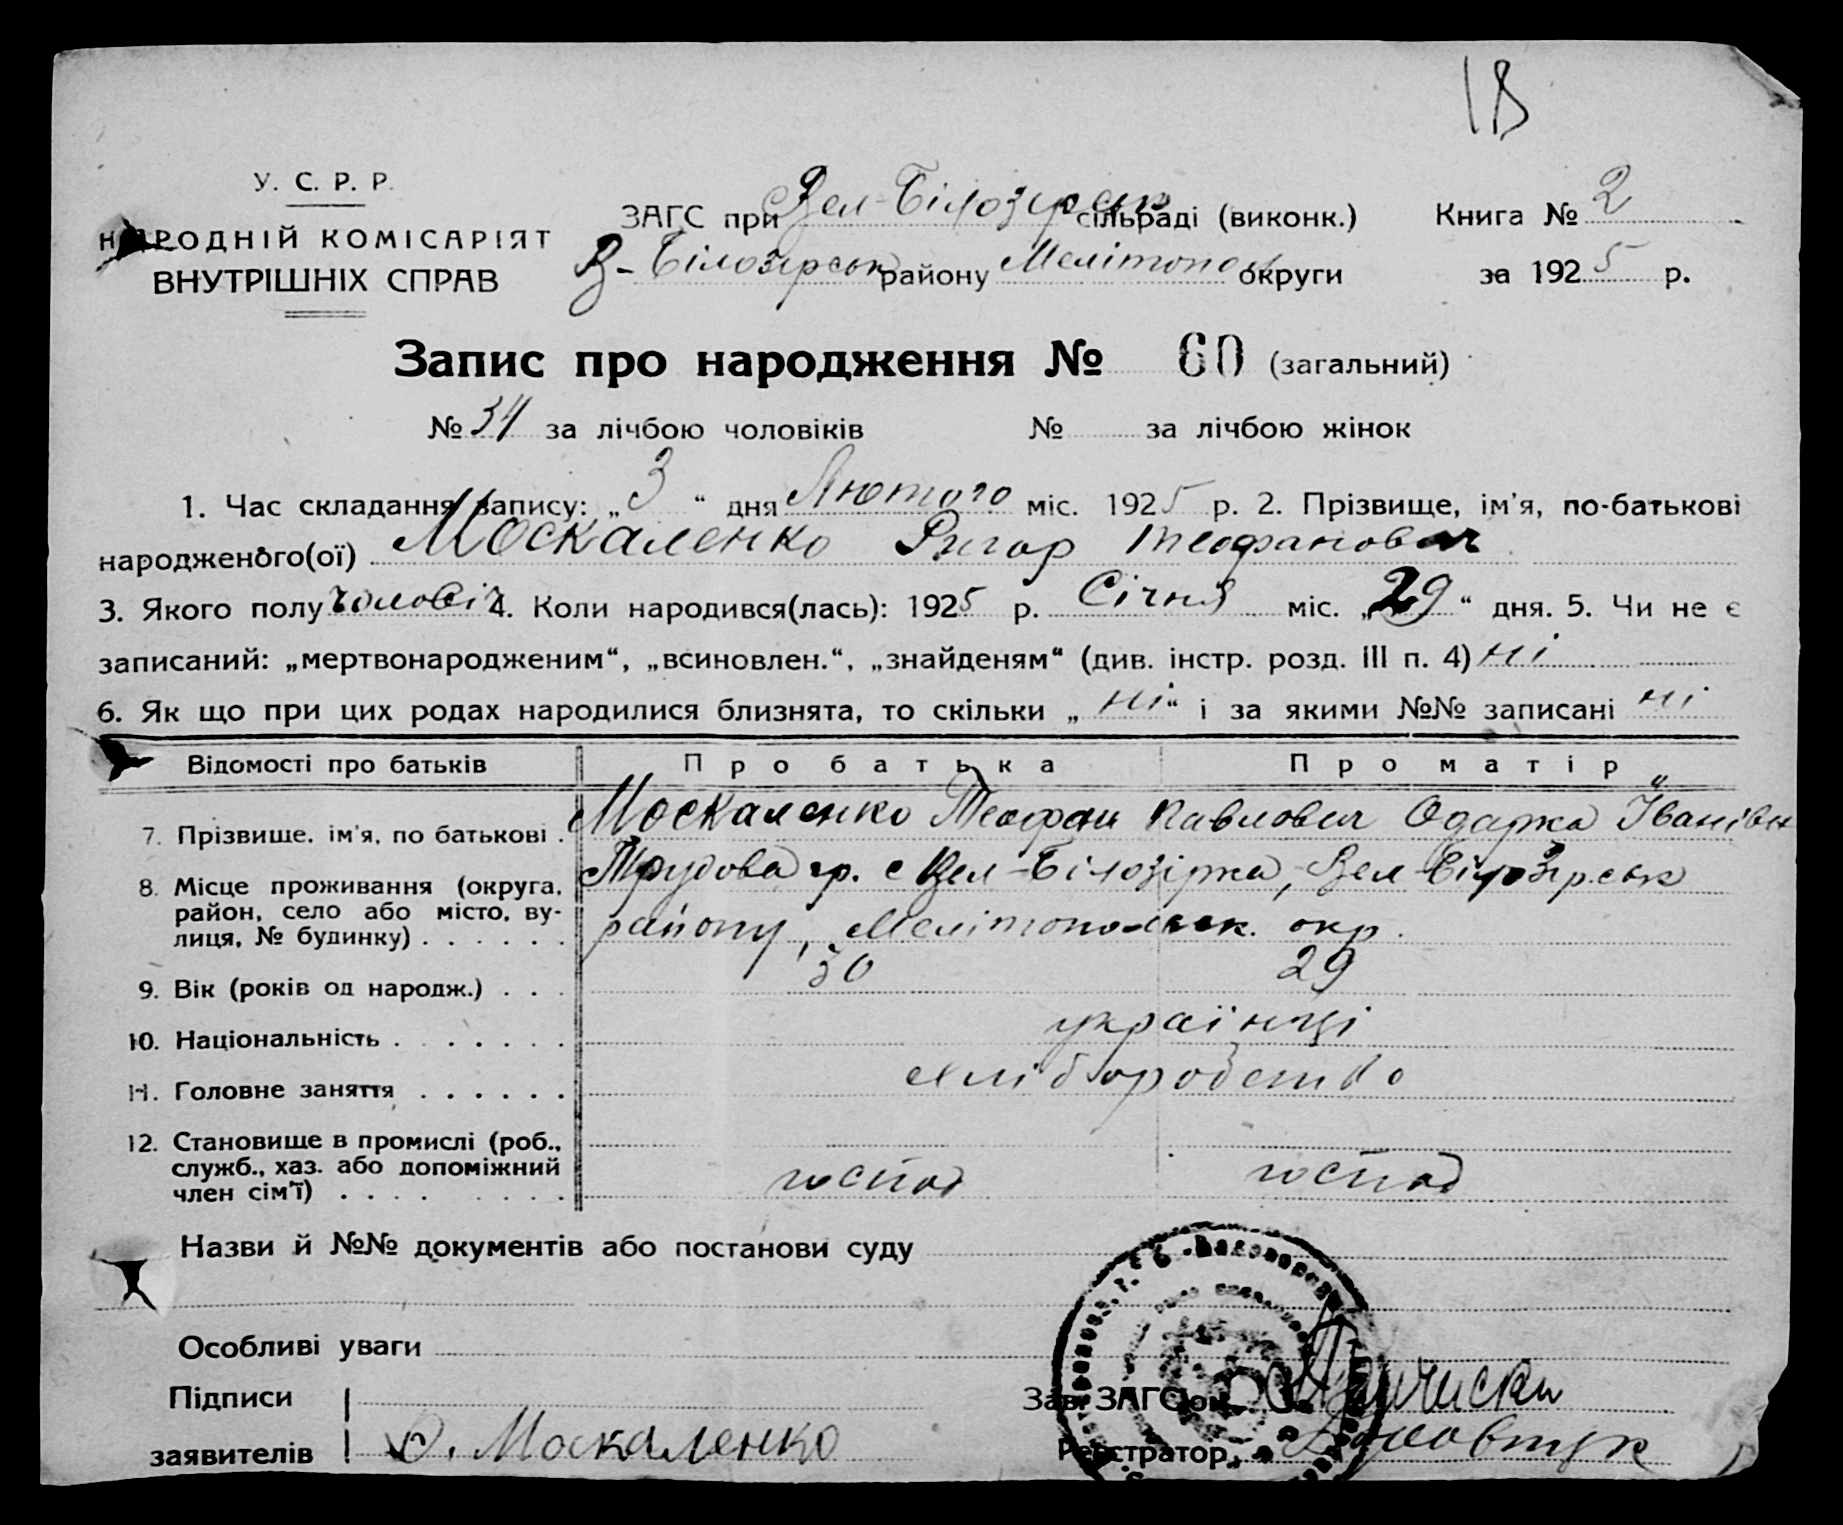 18
У. С. Р. Р.
НАРОДНІЙ КОМІСАРІЯТ
ВНУТРІШНІХ СПРАВ
ЗАГС при Вел-Білозірськ сільраді (виконк.)
В-Білозірськ району Мелітопол округи
Книга № 2
за 1925 р.
Запис про народження № 60 (загальний)
№ 34 за лічбою чоловіків № за лічбою жінок
1. Час складання запису: „3“ дня Лютого міс. 1925 р. 2. Прізвище, ім'я, по-батькові
народженого(ої) Москаленко Григор Теофанович
3. Якого полу чоловіч 4. Коли народився(лась): 1925 р. Січня міс. „29“ дня. 5. Чи не є
записаний: „мертвонародженим“, „всиновлен.“, „знайденям“ (див. інстр. розд. III п. 4) ні
6. Як що при цих родах народилися близнята, то скільки „ні“ і за якими №№ записані ні
Відомості про батьків Про батька Про матір
7. Прізвище, ім'я, по батькові . Москаленко Теофан Павлович Одарка Іванівн
8. Місце проживання (округа, район, село або місто, вулиця, № будинку) . . . . . . Трудова гр. с Вел-Білозірка, Вел Білозірськ
району, Мелітопольськ. окр.
9. Вік (років од народж.) . . . 30 29
10. Національність . . . . . . . українці
11. Головне заняття . . . . . . хліборобство
12. Становище в промислі (роб., служб., хаз. або допоміжний член сім'ї) . . . . . . . . господ господ
Назви й №№ документів або постанови суду
Особливі уваги
Підписи
заявителів О. Москаленко
Зав. ЗАГС'ом
Реєстратор